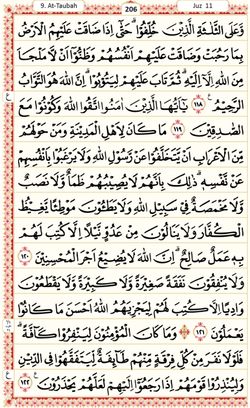 9. At-Taubah 206 Juz 11
وَّعَلَى الثَّلٰثَةِ الَّذِيْنَ خُلِّفُوْاۗ حَتّٰٓى اِذَا ضَاقَتْ عَلَيْهِمُ الْاَرْضُ
بِمَا رَحُبَتْ وَضَاقَتْ عَلَيْهِمْ اَنْفُسُهُمْ وَظَنُّوْٓا اَنْ لَّا مَلْجَاَ
مِنَ اللّٰهِ اِلَّآ اِلَيْهِۗ ثُمَّ تَابَ عَلَيْهِمْ لِيَتُوْبُوْاۗ اِنَّ اللّٰهَ هُوَ التَّوَّابُ
الرَّحِيْمُ ࣖ ١١٨ يٰٓاَيُّهَا الَّذِيْنَ اٰمَنُوا اتَّقُوا اللّٰهَ وَكُوْنُوْا مَعَ
الصّٰدِقِيْنَ ١١٩ مَا كَانَ لِاَهْلِ الْمَدِيْنَةِ وَمَنْ حَوْلَهُمْ
مِّنَ الْاَعْرَابِ اَنْ يَّتَخَلَّفُوْا عَنْ رَّسُوْلِ اللّٰهِ وَلَا يَرْغَبُوْا بِاَنْفُسِهِمْ
عَنْ نَّفْسِهٖۗ ذٰلِكَ بِاَنَّهُمْ لَا يُصِيْبُهُمْ ظَمَاٌ وَّلَا نَصَبٌ
وَّلَا مَخْمَصَةٌ فِيْ سَبِيْلِ اللّٰهِ وَلَا يَطَـُٔوْنَ مَوْطِئًا يَّغِيْظُ
الْكُفَّارَ وَلَا يَنَالُوْنَ مِنْ عَدُوٍّ نَّيْلًا اِلَّا كُتِبَ لَهُمْ
بِهٖ عَمَلٌ صَالِحٌۗ اِنَّ اللّٰهَ لَا يُضِيْعُ اَجْرَ الْمُحْسِنِيْنَ ١٢٠
وَلَا يُنْفِقُوْنَ نَفَقَةً صَغِيْرَةً وَّلَا كَبِيْرَةً وَّلَا يَقْطَعُوْنَ
وَادِيًا اِلَّا كُتِبَ لَهُمْ لِيَجْزِيَهُمُ اللّٰهُ اَحْسَنَ مَا كَانُوْا
يَعْمَلُوْنَ ١٢١ وَمَا كَانَ الْمُؤْمِنُوْنَ لِيَنْفِرُوْا كَاۤفَّةًۗ
فَلَوْلَا نَفَرَ مِنْ كُلِّ فِرْقَةٍ مِّنْهُمْ طَاۤىِٕفَةٌ لِّيَتَفَقَّهُوْا فِى الدِّيْنِ
وَلِيُنْذِرُوْا قَوْمَهُمْ اِذَا رَجَعُوْٓا اِلَيْهِمْ لَعَلَّهُمْ يَحْذَرُوْنَ ࣖ ١٢٢